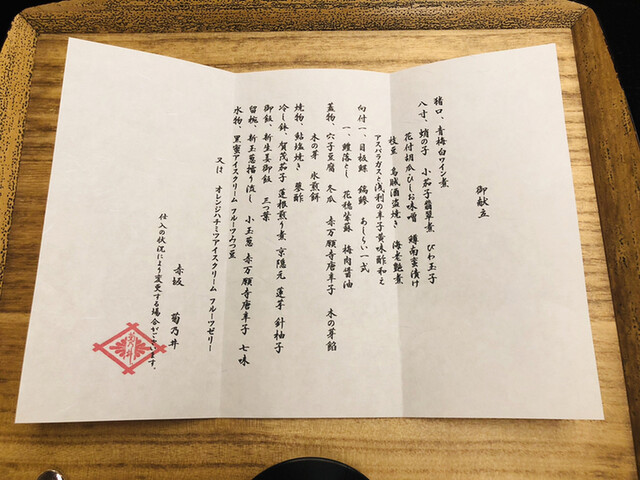 御献立
猪口、青梅白ワイン煮
八寸、蛸の子 小茄子翡翠煮 びわ玉子
花付胡瓜ひしお味噌 鱒南蛮漬け
枝豆 烏賊酒盗焼き 海老艶煮
アスパラガスと浅利の辛子黄味酢和え
向付一、目板鰈 縞鯵 あしらい一式
一、鱧落とし 花穂紫蘇 梅肉醤油
蓋物、穴子豆腐 冬瓜 赤万願寺唐辛子 木の芽餡
木の芽 氷煎餅
焼物、鮎塩焼き 蓼酢
冷し鉢、賀茂茄子 蓮根煎り煮 京隠元 蓮芋 針柚子
御飯、新生姜御飯 三つ葉
留椀、新玉葱摺り流し 小玉葱 赤万願寺唐辛子 七味
水物、黒蜜アイスクリーム フルーツみつ豆
又は オレンジハチミツアイスクリーム フルーツゼリー
赤坂 菊乃井
仕入の状況により変更する場合がございます。
菊乃井